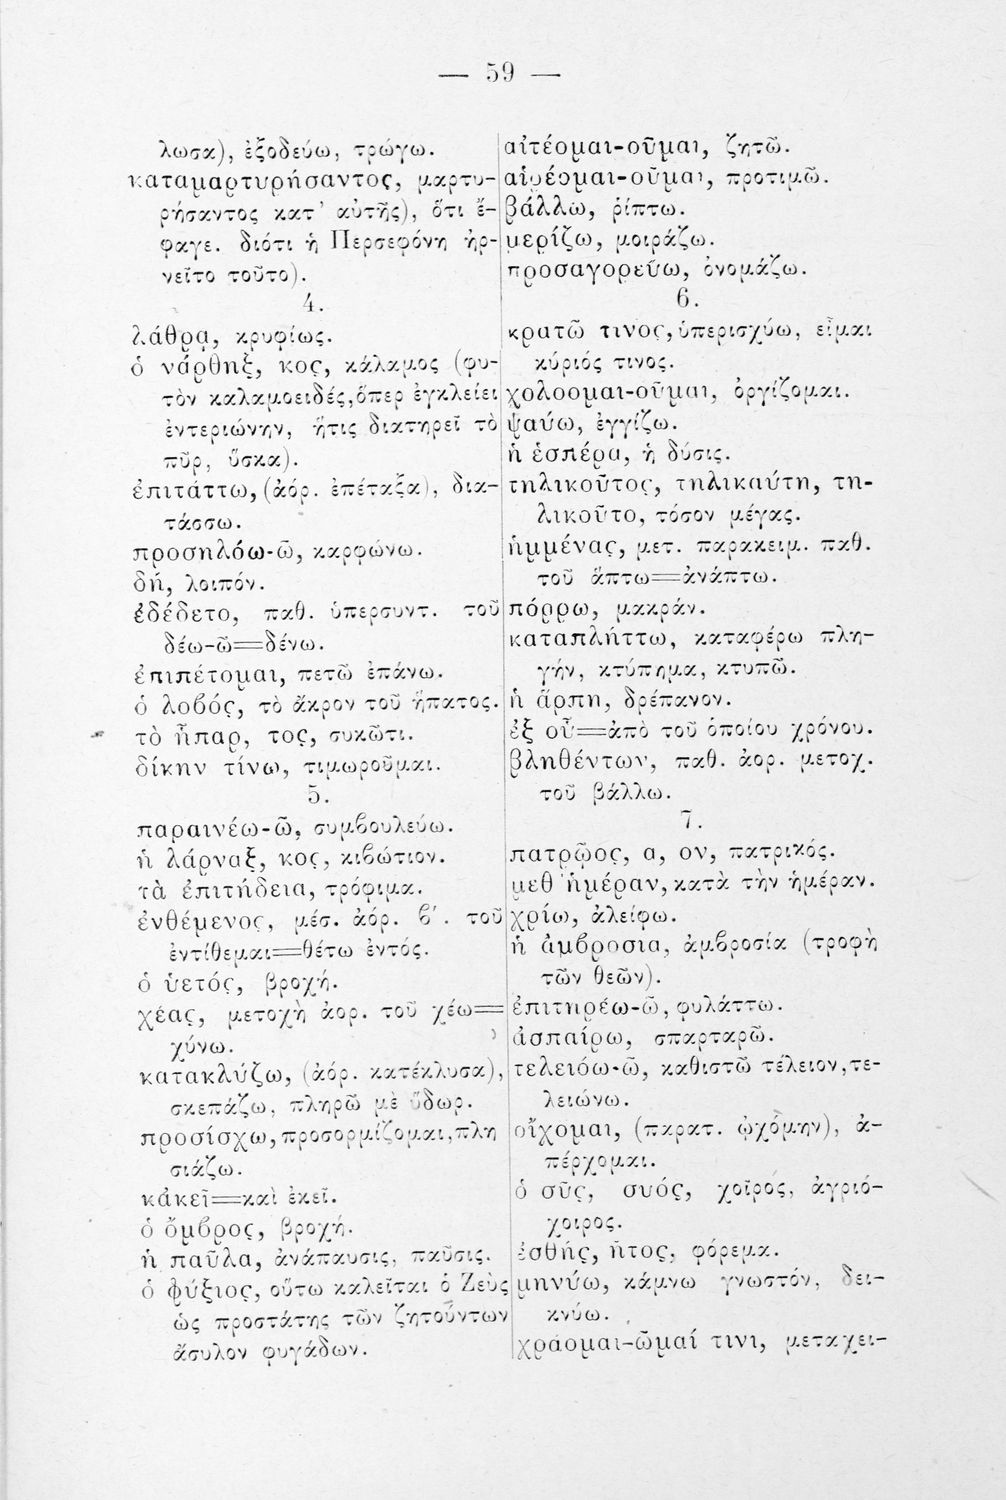 — 59 —
λωσα), ἐξοδεύω, τρώγω.
καταμαρτυρήσαντος, μαρτυ-
ρήσαντος κατ' αὐτῆς), ὅτι ἔ-
φαγε. διότι ἡ Περσεφόνη ἠρ-
νεῖτο τοῦτο).
4.
λάθρᾳ, κρυφίως.
ὁ νάρθηξ, κος, κάλαμος (φυ-
τὸν καλαμοειδές, ὅπερ ἐγκλείει
ἐντεριώνην, ἥτις διατηρεῖ τὸ
πῦρ, ὕσκα).
ἐπιτάττω, (ἀόρ. ἐπέταξα), δια-
τάσσω.
προσηλόω-ῶ, καρφώνω.
δή, λοιπόν.
ἐδέδετο, παθ. ὑπερσυντ. τοῦ
δέω-ῶ=δένω.
ἐπιπέτομαι, πετῶ ἐπάνω.
ὁ λοβός, τὸ ἄκρον τοῦ ἥπατος.
τὸ ἧπαρ, τος, συκῶτι.
δίκην τίνω, τιμωροῦμαι.
5.
παραινέω-ῶ, συμβουλεύω.
ἡ λάρναξ, κος, κιβώτιον.
τὰ ἐπιτήδεια, τρόφιμα.
ἐνθέμενος, μέσ. ἀόρ. β'. τοῦ
ἐντίθεμαι=θέτω ἐντός.
ὁ ὑετός, βροχή.
χέας, μετοχὴ ἀορ. τοῦ χέω=
χύνω.
κατακλύζω, (ἀόρ. κατέκλυσα),
σκεπάζω, πληρῶ μὲ ὕδωρ.
προσίσχω, προσορμίζομαι, πλη
σιάζω.
κἀκεῖ=καὶ ἐκεῖ.
ὁ ὄμβρος, βροχή.
ἡ παῦλα, ἀνάπαυσις, παῦσις.
ὁ φύξιος, οὕτω καλεῖται ὁ Ζεὺς
ὡς προστάτης τῶν ζητούντων
ἄσυλον φυγάδων.
αἰτέομαι-οῦμαι, ζητῶ.
αἱρέομαι-οῦμαι, προτιμῶ.
βάλλω, ῥίπτω.
μερίζω, μοιράζω.
προσαγορεύω, ὀνομάζω.
6.
κρατῶ τινος, ὑπερισχύω, εἶμαι
κύριός τινος.
χολοομαι-οῦμαι, ὀργίζομαι.
ψαύω, ἐγγίζω.
ἡ ἑσπέρα, ἡ δύσις.
τηλικοῦτος, τηλικαύτη, τη-
λικοῦτο, τόσον μέγας.
ἡμμένας, μετ. παρακειμ. παθ.
τοῦ ἅπτω=ἀνάπτω.
πόρρω, μακράν.
καταπλήττω, καταφέρω πλη-
γήν, κτύπημα, κτυπῶ.
ἡ ἅρπη, δρέπανον.
ἐξ οὗ=ἀπὸ τοῦ ὁποίου χρόνου.
βληθέντων, παθ. ἀορ. μετοχ.
τοῦ βάλλω.
7.
πατρῷος, α, ον, πατρικός.
μεθ' ἡμέραν, κατὰ τὴν ἡμέραν.
χρίω, ἀλείφω.
ἡ ἀμβροσια, ἀμβροσία (τροφὴ
τῶν θεῶν).
ἐπιτηρέω-ῶ, φυλάττω.
ἀσπαίρω, σπαρταρῶ.
τελειόω-ῶ, καθιστῶ τέλειον, τε-
λειώνω.
οἴχομαι, (παρατ. ᾠχόμην), ἀ-
πέρχομαι.
ὁ σῦς, συός, χοῖρος, ἀγριό-
χοιρος.
ἐσθής, ῆτος, φόρεμα.
μηνύω, κάμνω γνωστόν, δει-
κνύω.
χράομαι-ῶμαί τινι, μεταχει-